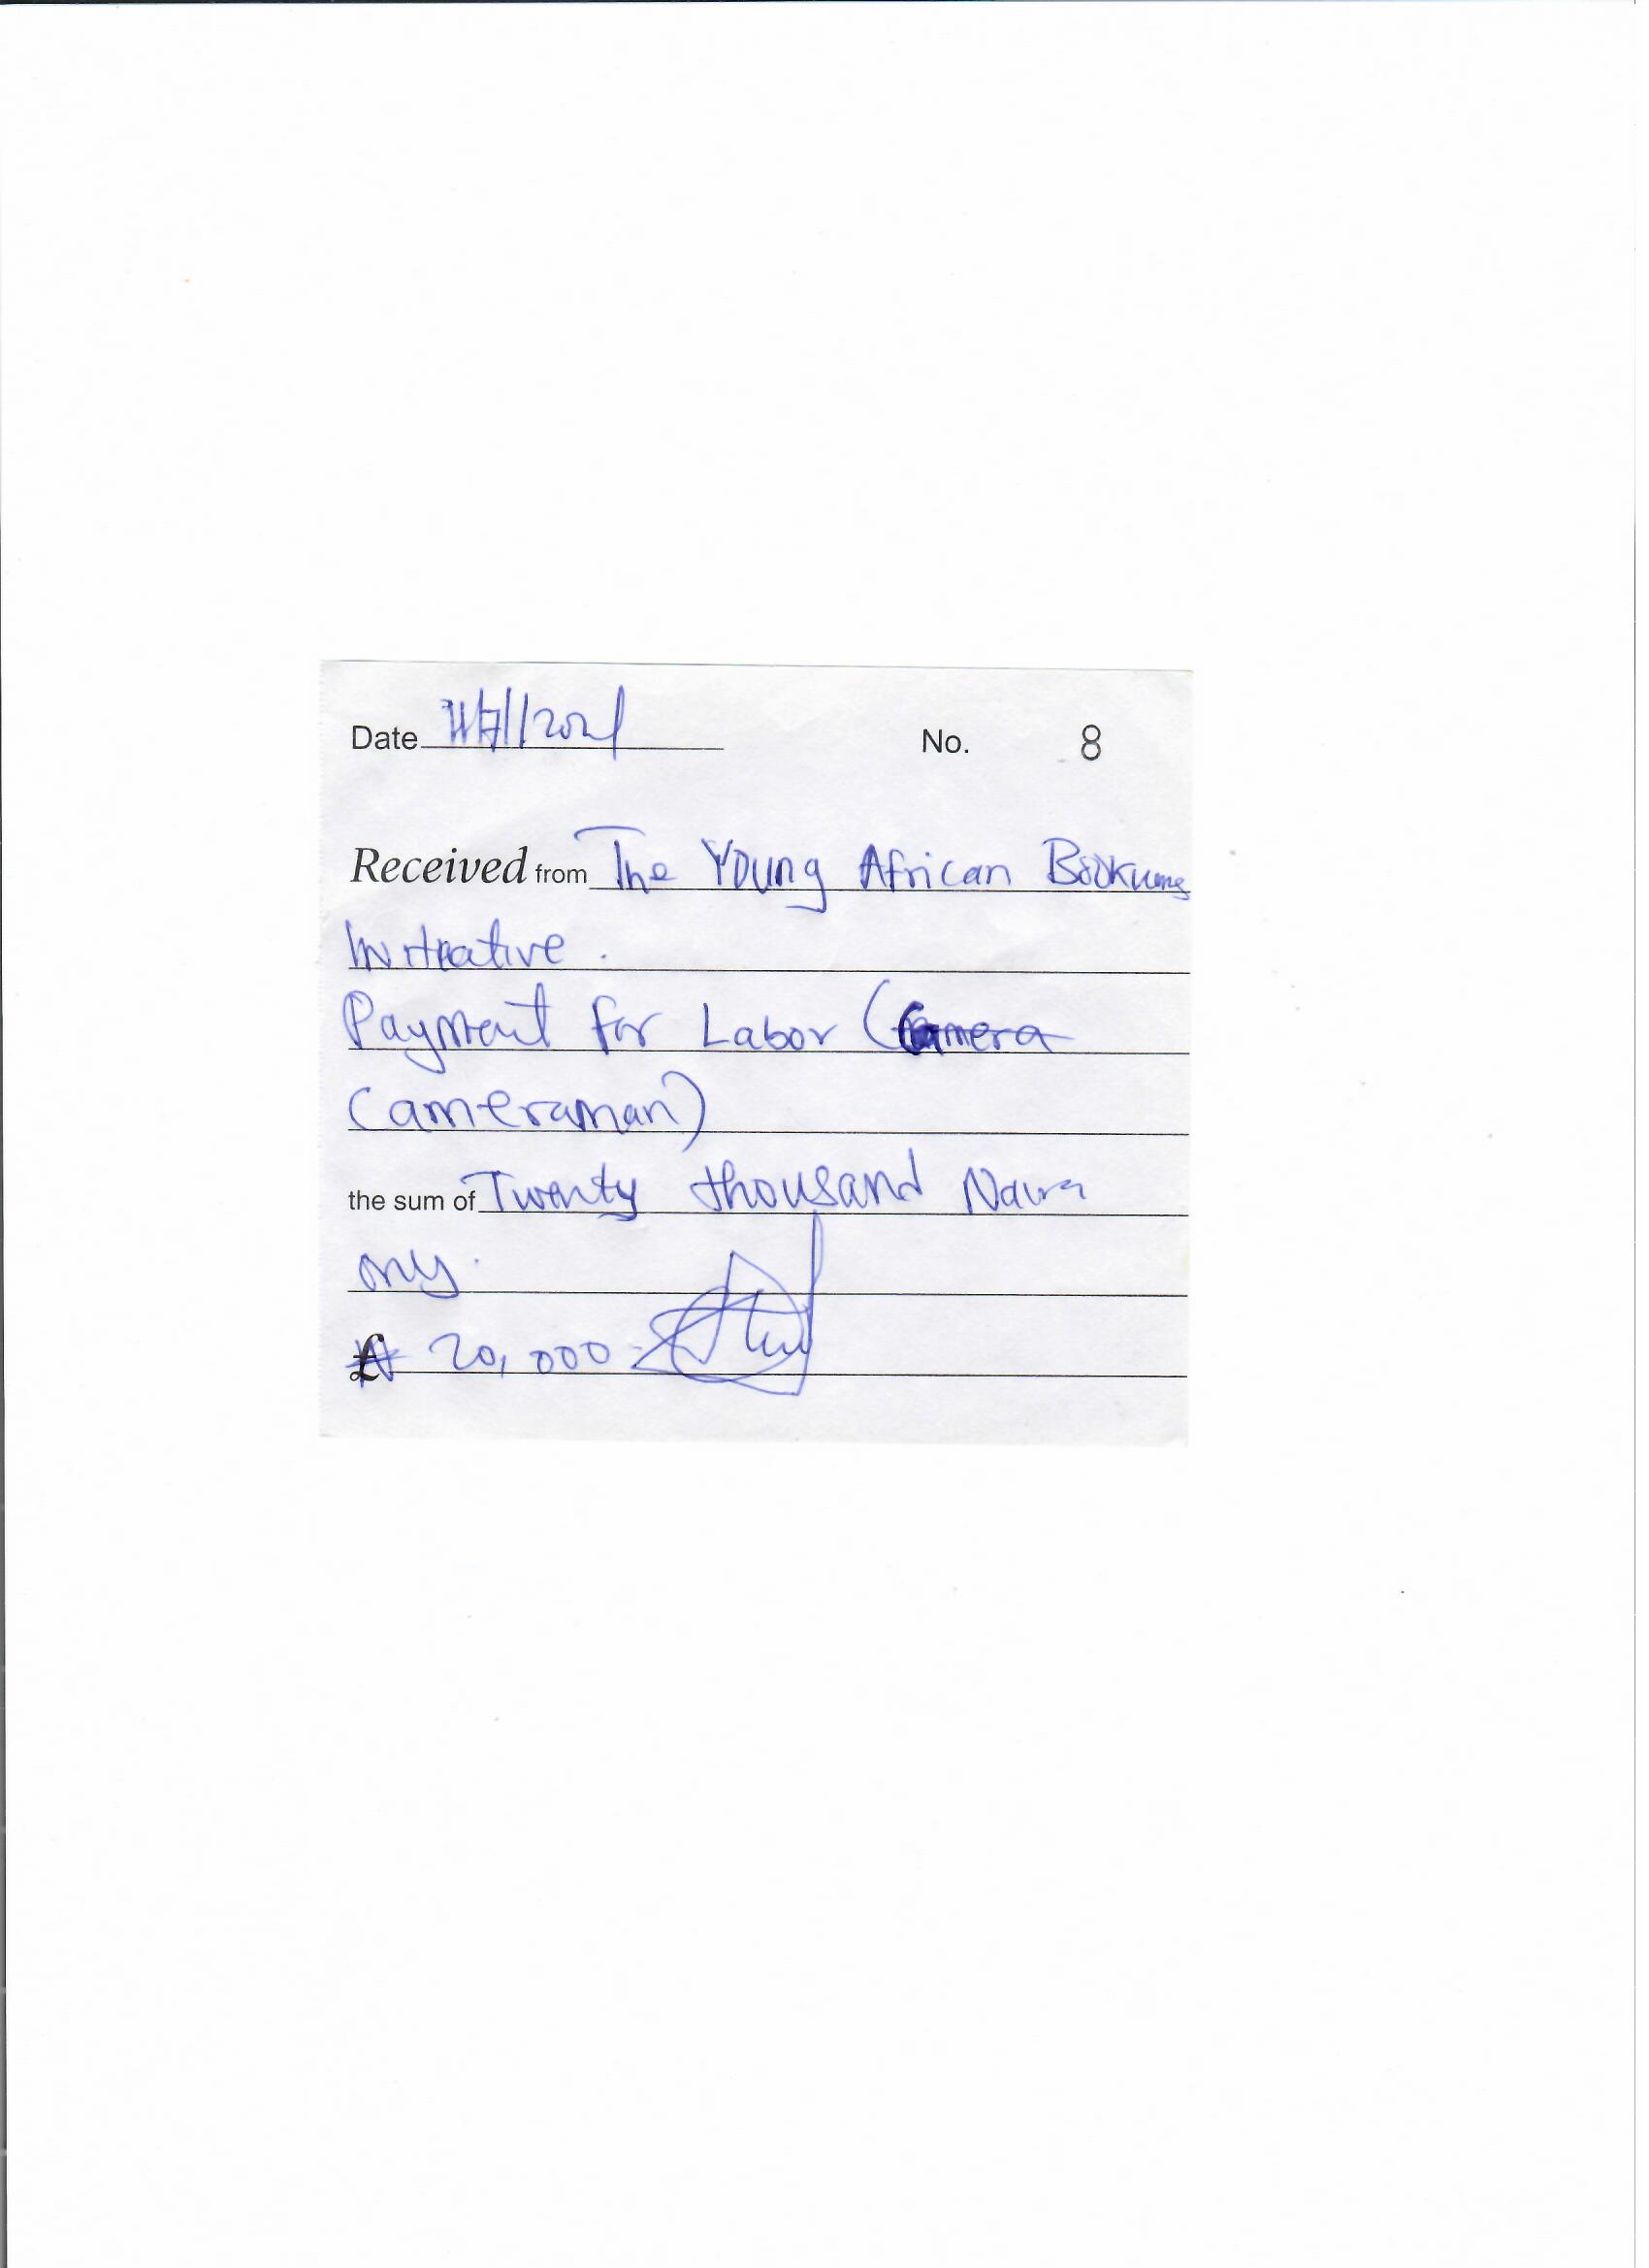 Date No. 8
Received from The Young African
Initiative.
Payment for Labor (Camera
Cameraman)
the sum of Twenty thousand Naira
only.
₦ 20,000